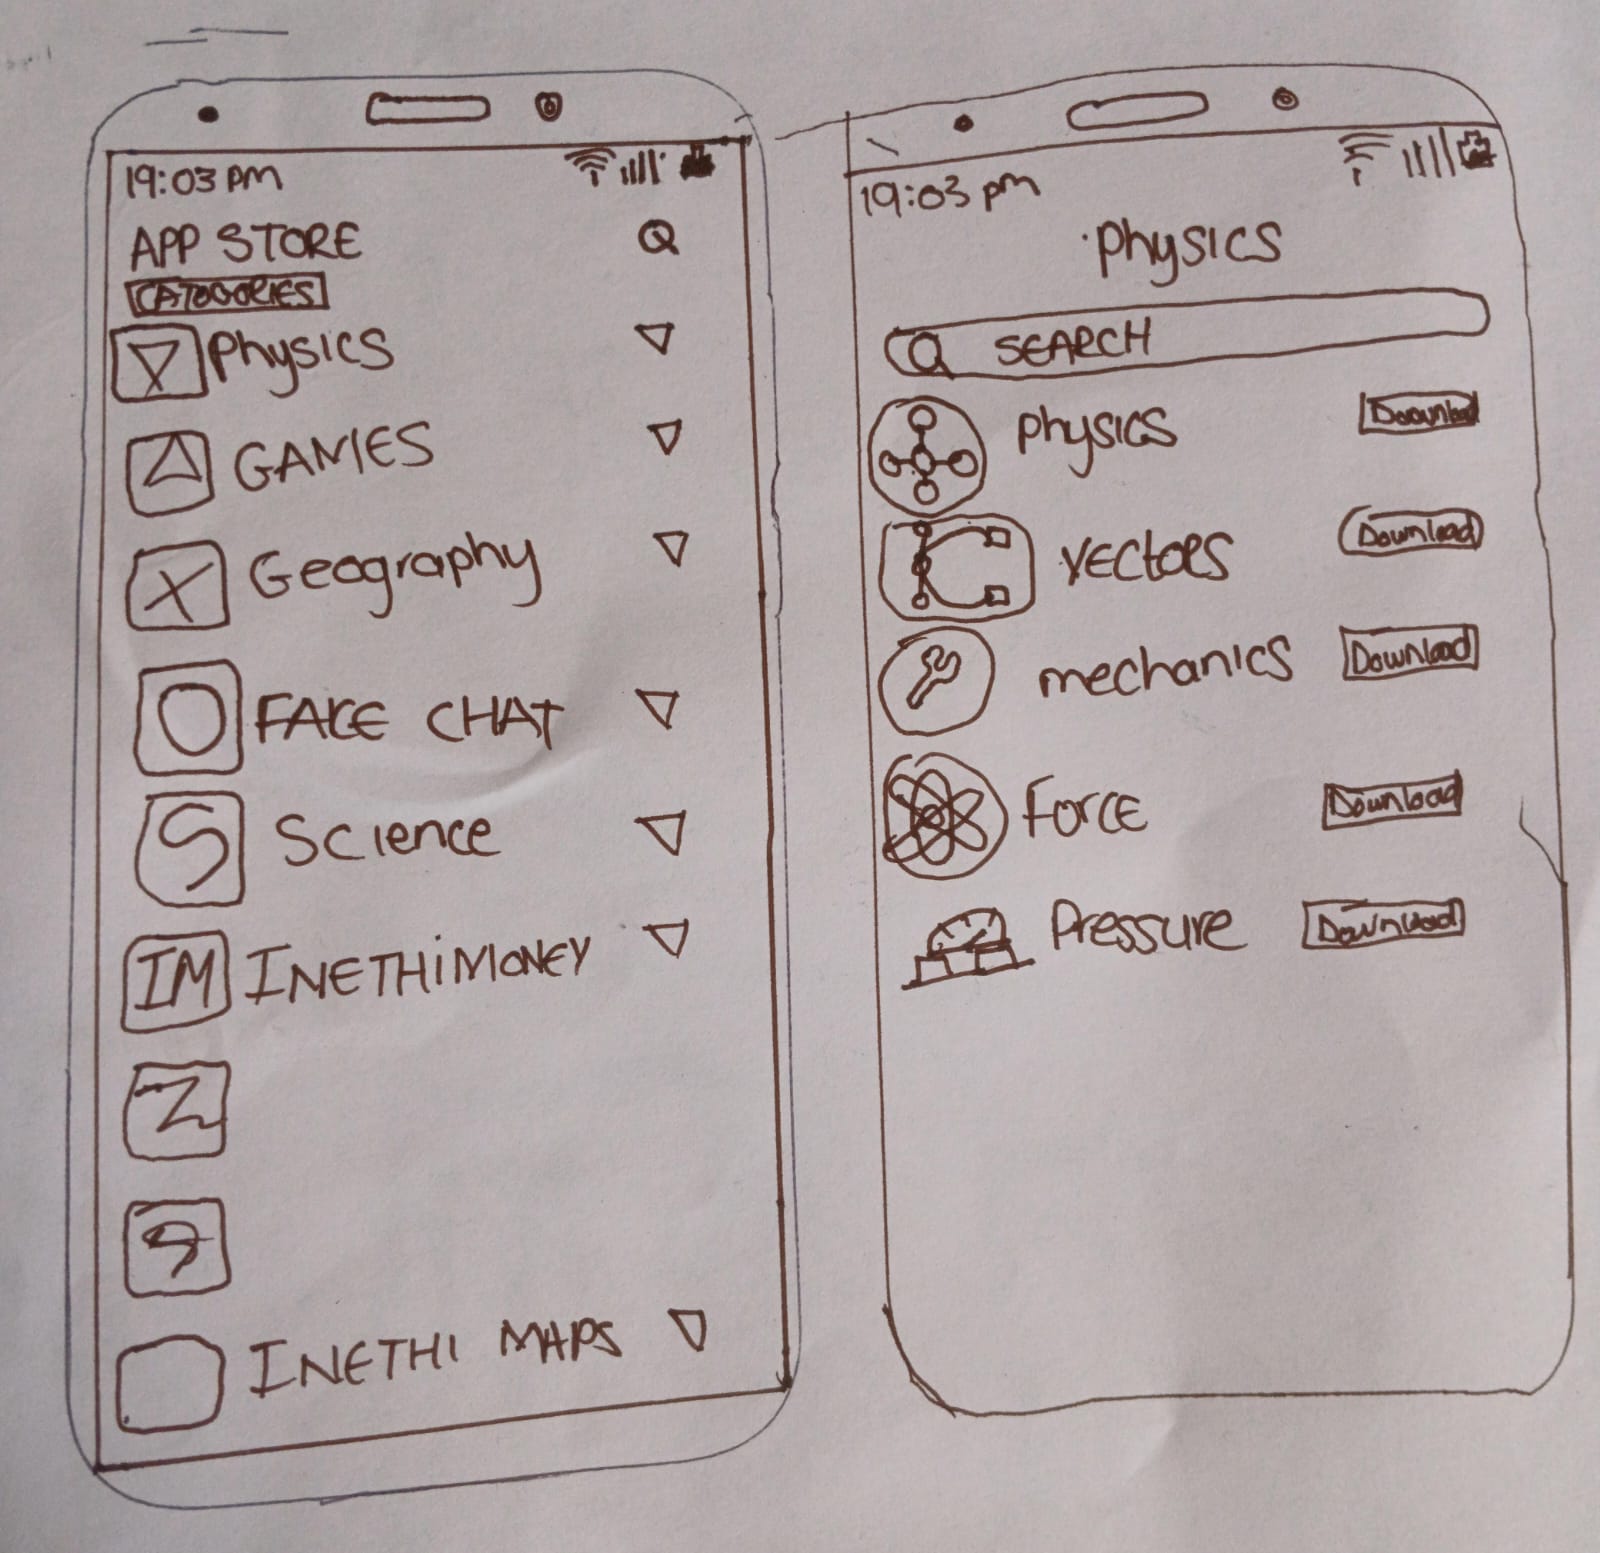 19:03 pm
APP STORE
CATOGORIES
Physics
GAMES
X Geography
FAKE CHAT
S Science
IM INETHIMONEY
Z
INETHI MAPS
19:03 pm
Physics
SEARCH
Physics Download
VECTORS Download
mechanics Download
Force Download
Pressure Download